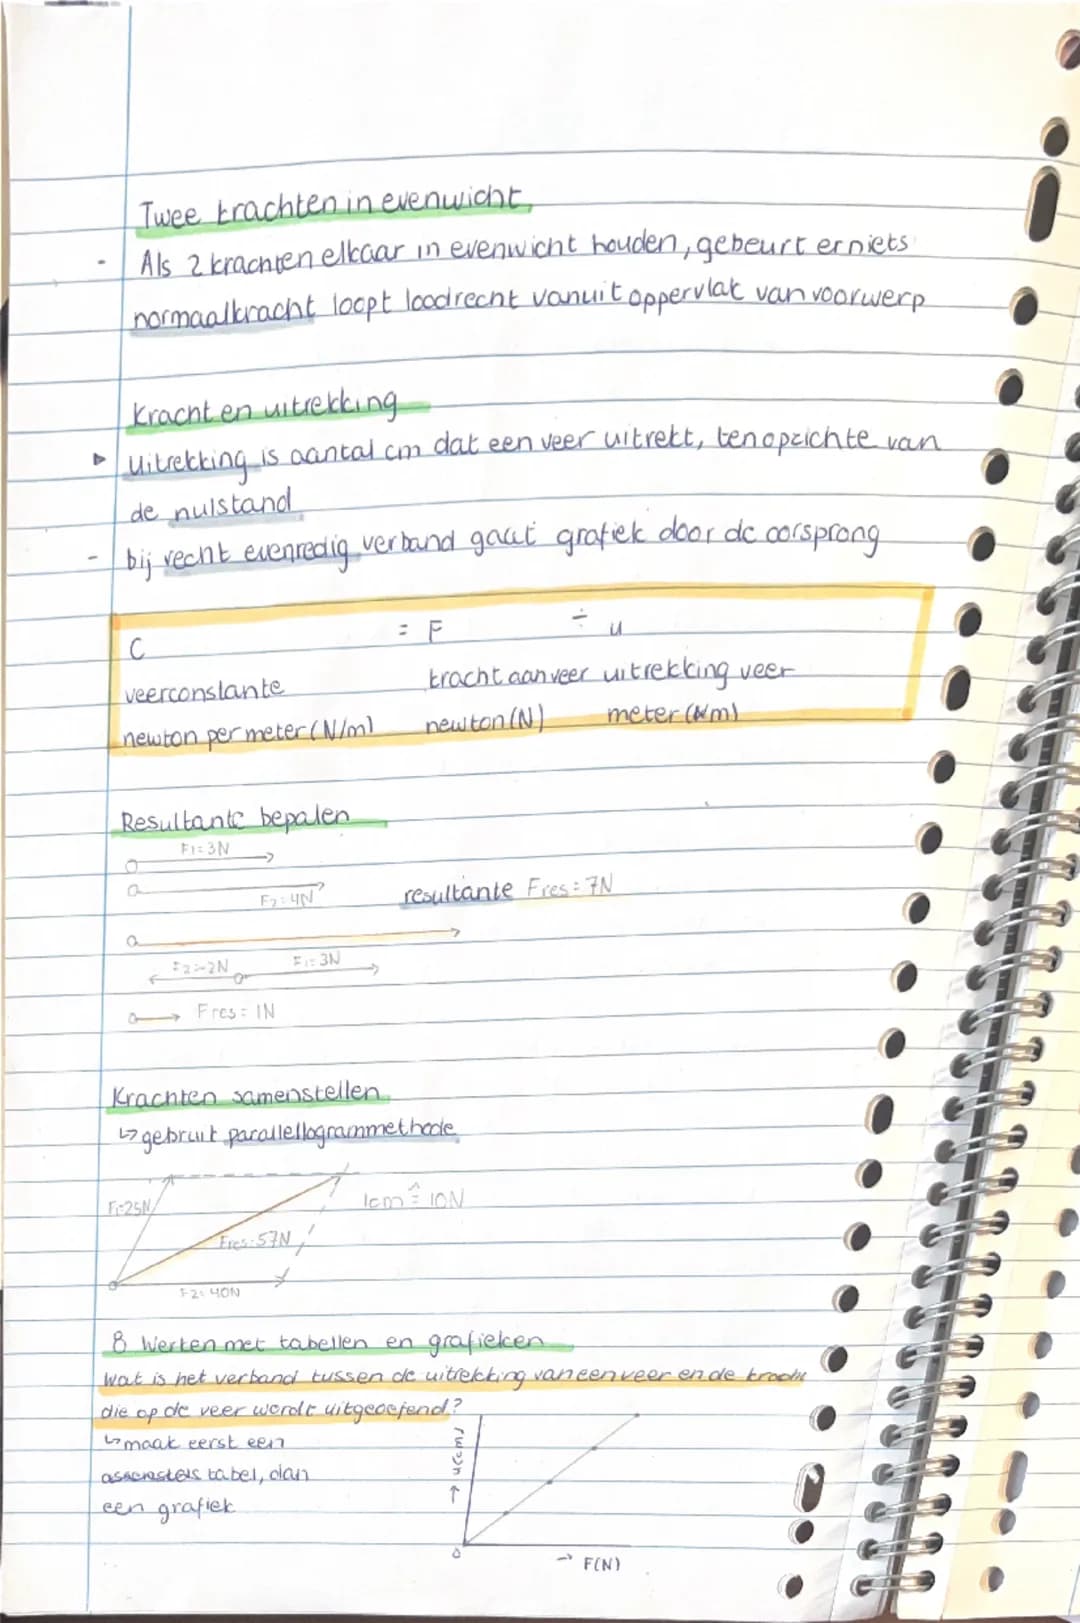 Twee krachten in evenwicht
- Als 2 krachten elkaar in evenwicht houden, gebeurt er niets
normaalkracht loopt loodrecht vanuit oppervlak van voorwerp
Kracht en uitrekking
▷ uitrekking is aantal cm dat een veer uitrekt, ten opzichte van
de nulstand
- bij recht evenredig verband gaat grafiek door de oorsprong
C = F ÷ u
veerconstante kracht aan veer uitrekking veer
newton per meter (N/m) newton (N) meter (m)
Resultante bepalen
F1=3N
F2=4N resultante Fres=7N
F2=-2N F1=3N
Fres=1N
Krachten samenstellen
↳ gebruik parallellogrammethode
F1=25N 1cm ≙ 10N
Fres=57N
F2=40N
8 Werken met tabellen en grafieken
Wat is het verband tussen de uitrekking van een veer en de kracht
die op de veer wordt uitgeoefend?
↳ maak eerst een
tabel, dan
een grafiek
→ u(cm)
0
→ F(N)